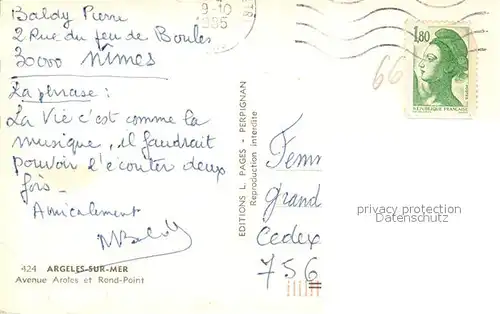 Baldy Pierre
2 Rue du jeu de Boules
30000 Nîmes
La phrase :
La Vie c'est comme la
musique, il faudrait
pouvoir l'écouter deux
fois_
Amicalement
424 ARGELES-SUR-MER
Avenue Aroles et Rond-Point
EDITIONS L. PAGES - PERPIGNAN
Reproduction interdite
9-10
1985
1,80
REPUBLIQUE FRANÇAISE
66
Femm
grand
Cedex
756
privacy protection
Datenschutz